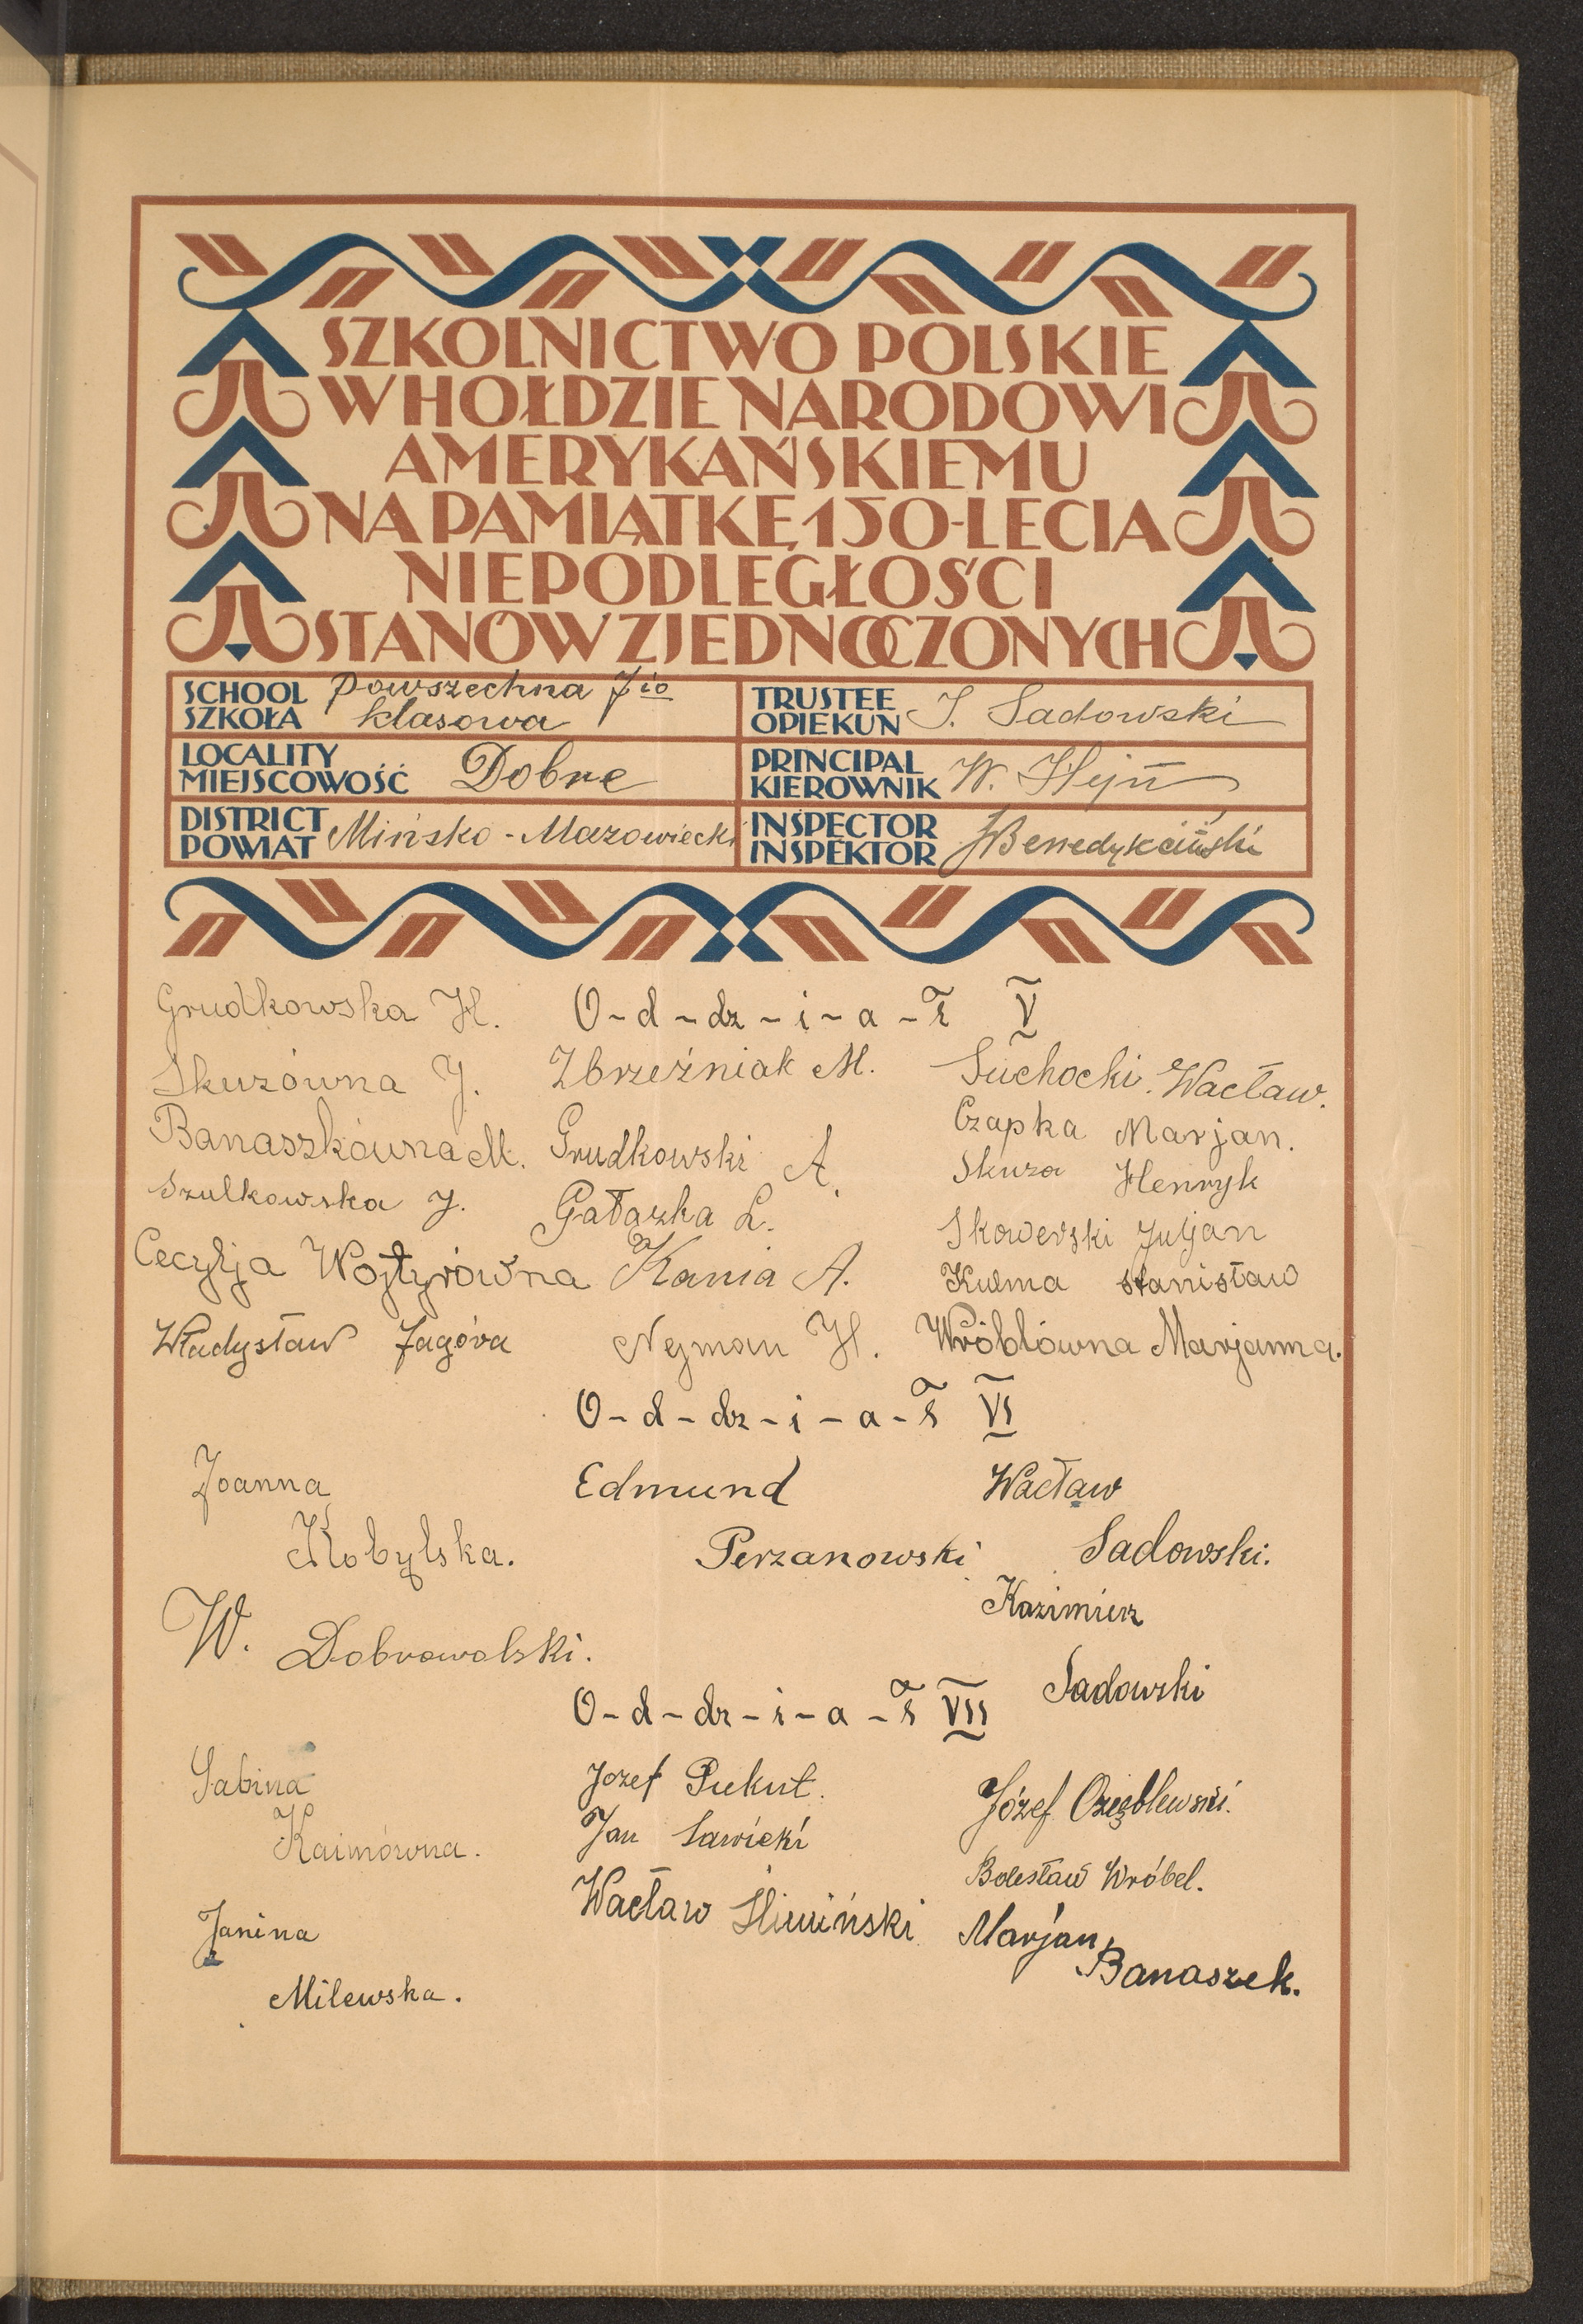 SZKOLNICTWO POLSKIE
W HOŁDZIE NARODOWI
AMERYKAŃSKIEMU
NA PAMIĄTKĘ 150-LECIA
NIEPODLEGŁOŚCI
STANÓW ZJEDNOCZONYCH
SCHOOL
SZKOŁA
Powszechna 7io
klasowa
TRUSTEE
OPIEKUN
J. Sadowski
LOCALITY
MIEJSCOWOŚĆ
Dobre
PRINCIPAL
KIEROWNIK
W. Hejn
DISTRICT
POWIAT
Mińsko-Mazowiecki
INSPECTOR
INSPEKTOR
Benedykciński
Grudkowska H.
O-d-dz-i-a-ł V
Skuzówna J.
Zbrzeźniak M.
Suchocki Wacław.
Banaszkówna M.
Grudkowski A.
Czapka Marjan.
Szulkowska J.
Gałązka L.
Skuza Henryk
Cecylja Wojtyrówna
Kania A.
Skowerski Juljan
Kulma Stanisław
Władysław Jagóra
Nejman H.
Wróblówna Marjanna.
O-d-dz-i-a-ł VI
Joanna
Kobylska.
Edmund
Perzanowski
Wacław
Sadowski.
W. Dobrowolski.
Kazimierz
Sadowski
O-d-dz-i-a-ł VII
Sabina
Kaimówna.
Józef Piekut.
Józef Oziębłewski.
Jan Sawicki
Bolesław Wróbel.
Wacław Śliwiński
Janina
Milewska.
Marjan
Banaszek.